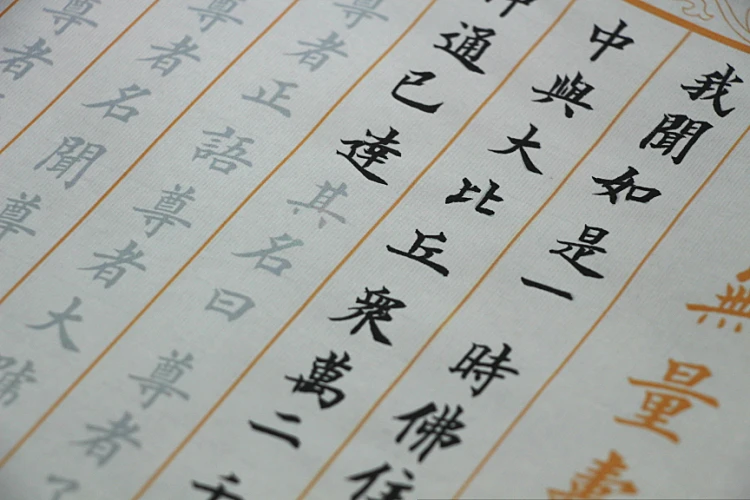 無量壽
我聞如是一時佛住
中與大比丘眾萬二千
通已達其名曰尊者
尊者正語尊者大號
尊者名聞尊
尊者